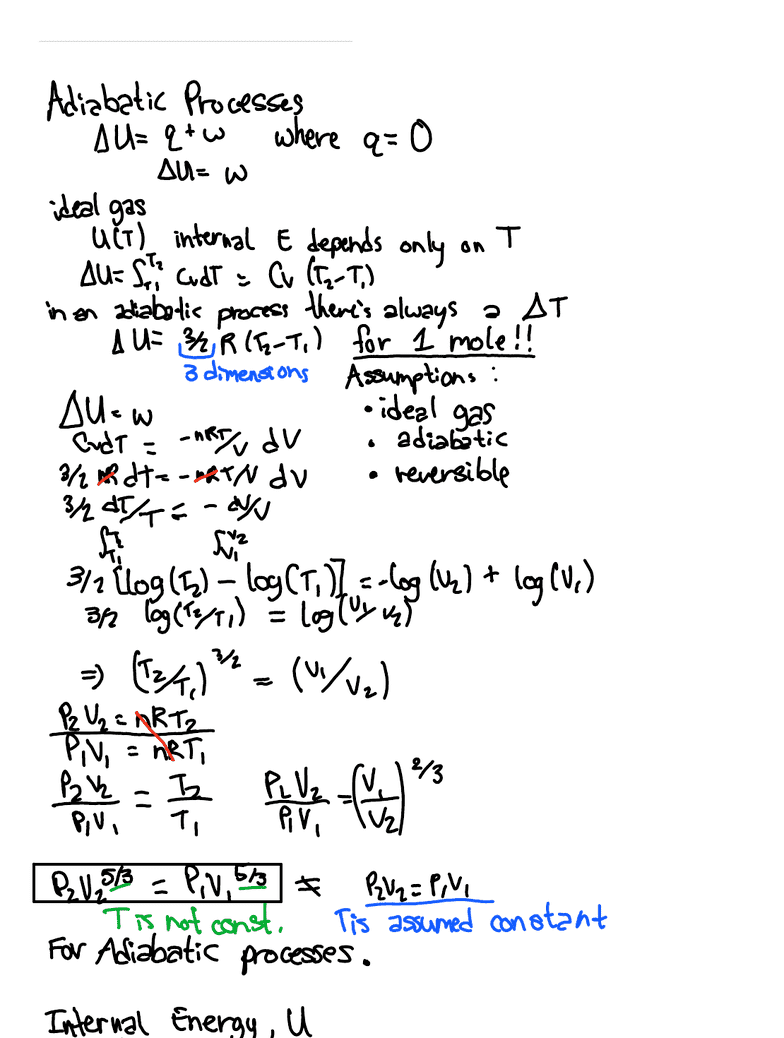 Adiabatic Processes
ΔU = q + w where q = 0
ΔU = w
ideal gas
U(T) internal E depends only on T
ΔU = ∫_{T₁}^{T₂} CvdT = Cv (T₂-T₁)
in an adiabatic process there's always a ΔT
ΔU = 3/2 R (T₂-T₁) for 1 mole!!
3 dimensions
Assumptions:
• ideal gas
• adiabatic
• reversible
ΔU = w
CvdT = -nRT/V dV
3/2 nR dt = -nRT/V dV
3/2 dT/T = - dV/V
∫_{T₁}^{T₂} ∫_{V₁}^{V₂}
3/2 [log(T₂) - log(T₁)] = -log(V₂) + log(V₁)
3/2 log(T₂/T₁) = log(V₁/V₂)
⇒ (T₂/T₁)^{3/2} = (V₁/V₂)
P₂V₂ = nRT₂
P₁V₁ = nRT₁
P₂V₂/P₁V₁ = T₂/T₁ P₂V₂/P₁V₁ = (V₁/V₂)^{2/3}
P₂V₂^{5/3} = P₁V₁^{5/3} ≠ P₂V₂ = P₁V₁
T is not const. T is assumed constant
For Adiabatic processes.
Internal Energy, U